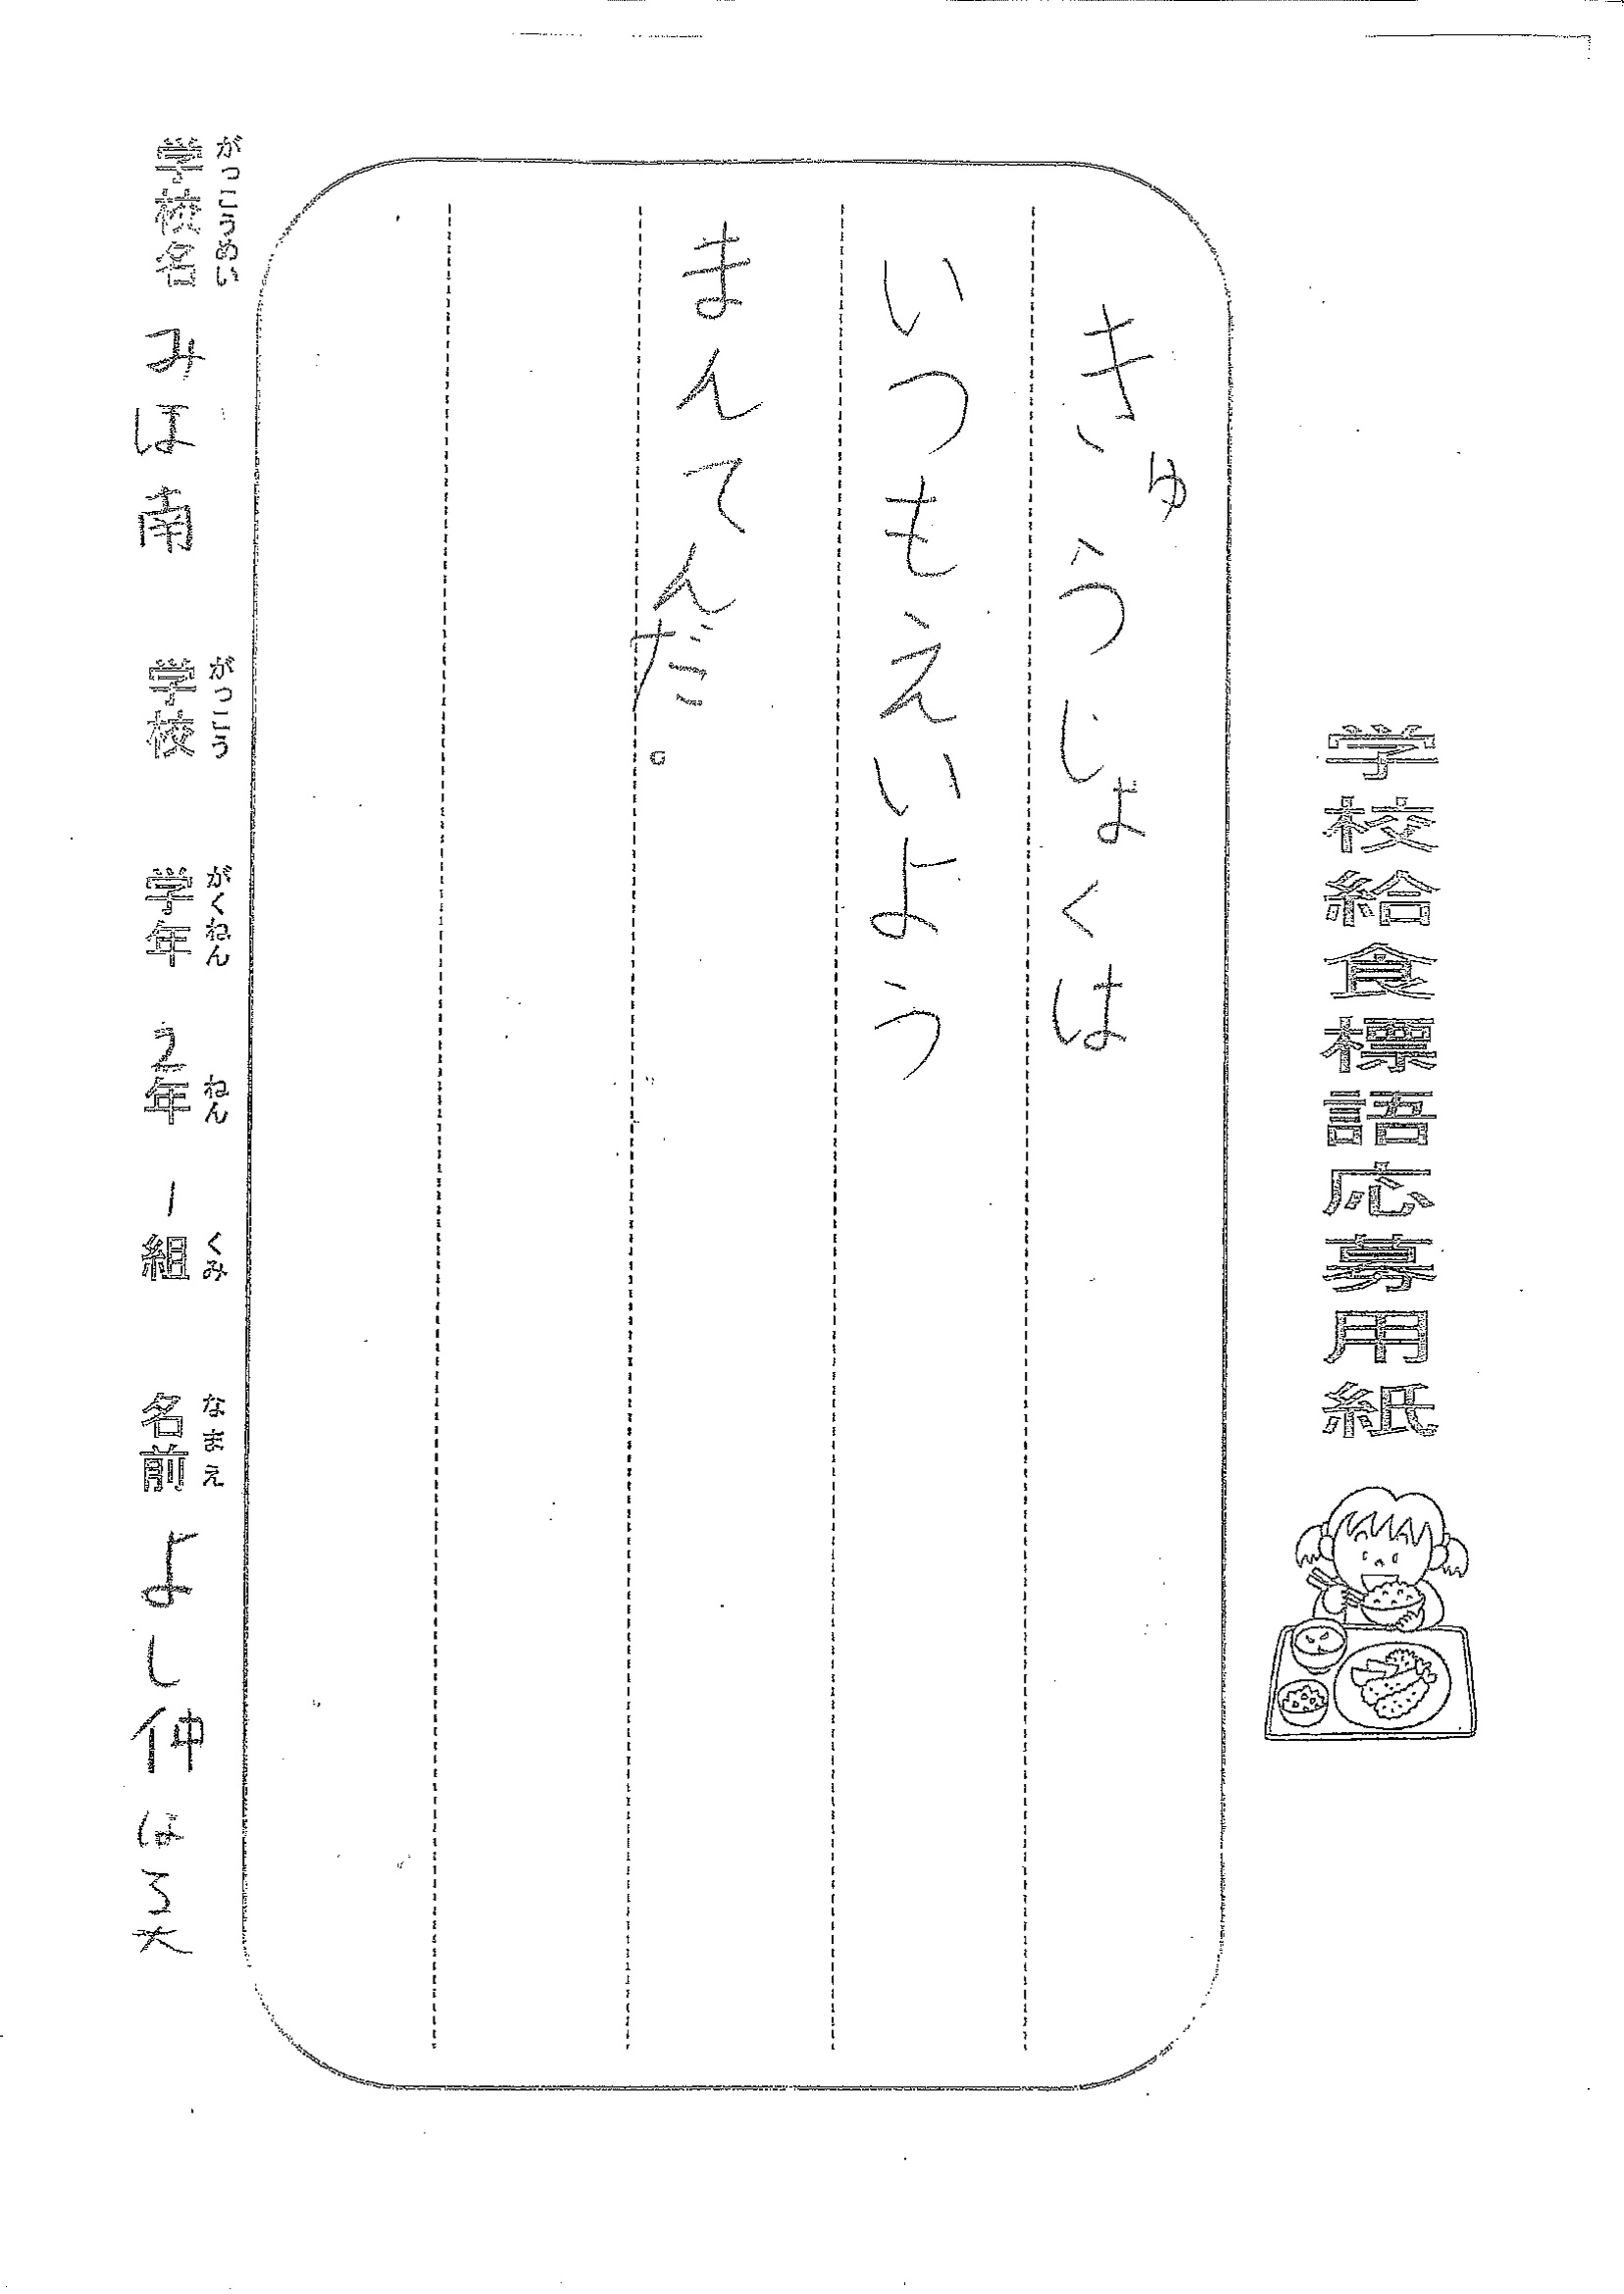 学校給食標語応募用紙
きゅうしょくは
いつもえいよう
まんてんだ。
がっこうめい がっこう がくねん ねん くみ なまえ
学校名 みほ南 学校 学年 2年 1組 名前 よし仲 はる大